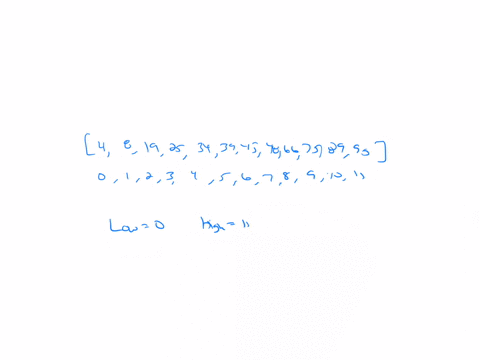 [4, 8, 19, 25, 34, 39, 45, 48, 66, 75, 89, 95]
0, 1, 2, 3, 4, 5, 6, 7, 8, 9, 10, 11
Low = 0 high = 11